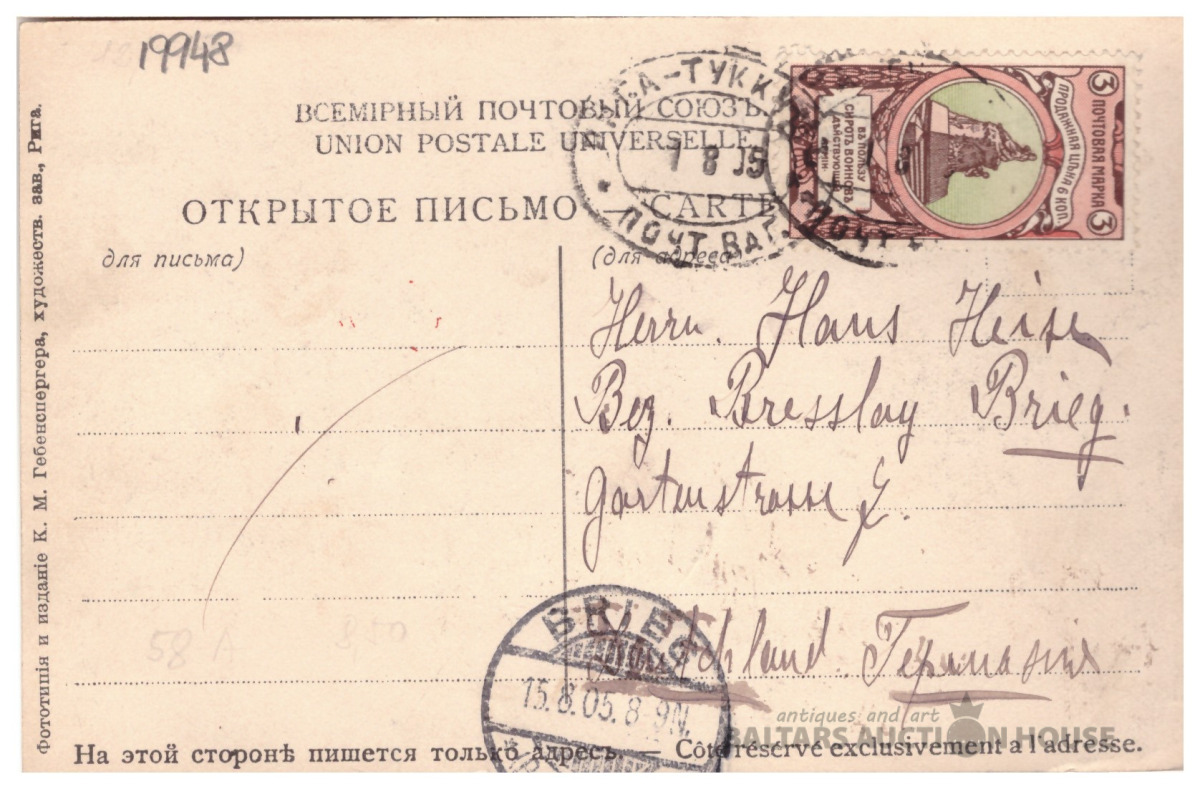 19948
ВСЕМІРНЫЙ ПОЧТОВЫЙ СОЮЗЪ.
UNION POSTALE UNIVERSELLE.
ОТКРЫТОЕ ПИСЬМО — CARTE
для письма)
(для адреса)
ГА-ТУККУ
1 8 05
ПОЧТ. ВАГ.
3 ПОЧТОВАЯ МАРКА 3
ПРОДАЖНАЯ ЦѢНА 6 КОП.
ВЪ ПОЛЬЗУ
СИРОТЪ ВОИНОВЪ
ДѢЙСТВУЮЩЕЙ
АРМІИ
Herrn. Hans Heise
Bez. Bresslay Brieg.
Gartenstrasse
Германія
BRIEG
15.8.05.8-9N.
58 A
Фототипія и изданіе К. М. Гебенспергера, художеств. зав., Рига.
На этой сторонѣ пишется только адресъ. — Côté réservé exclusivement a l'adresse.
antiques and art
BALTARS AUCTION HOUSE